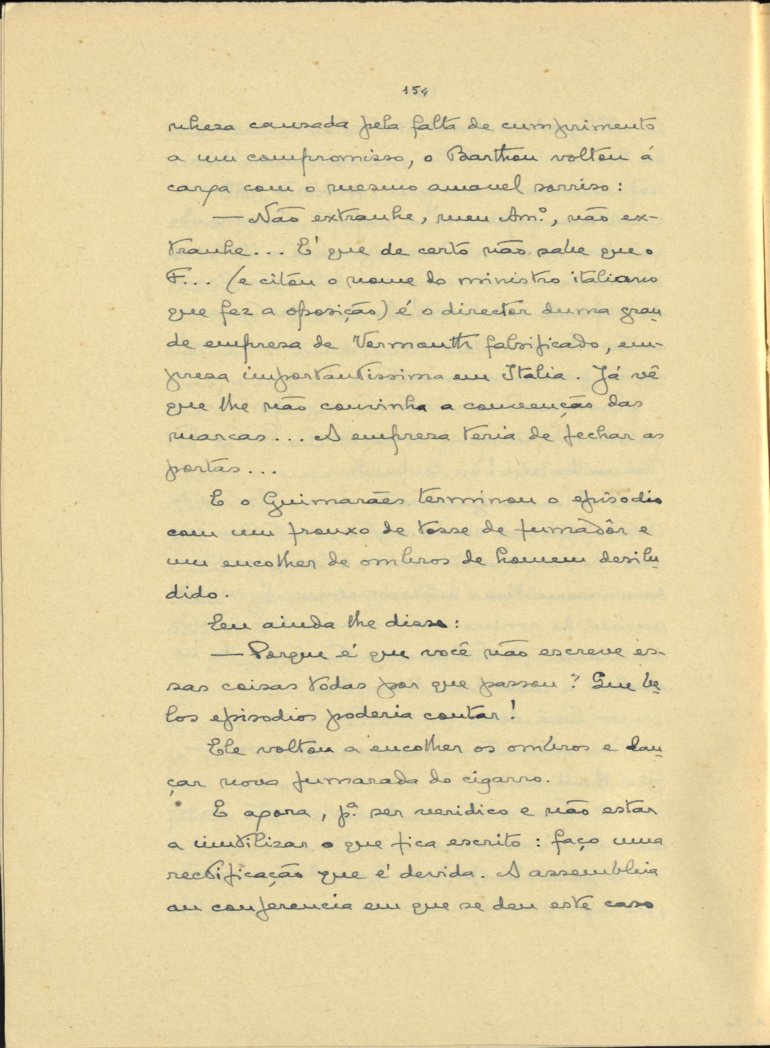 154
nheza causada pela falta de cumprimento
a um compromisso, o Barthou voltou á
carga com o mesmo amavel sorriso:
— Não extranhe, meu Am.º, não ex-
tranhe... E' que de certo não sabe que o
F... (e citou o nome do ministro italiano
que fez a oposição) é o director duma gran-
de empresa de Vermouth falsificado, em-
presa importantissima em Italia. Já vê
que lhe não convinha a convenção das
marcas... A empresa teria de fechar as
portas...
E o Guimarães terminou o episodio
com um frouxo de tosse de fumadôr e
um encolher de ombros de homem desilu-
dido.
Eu ainda lhe disse:
— Porque é que você não escreve es-
sas coisas todas por que passou? Que be-
los episodios poderia contar!
Ele voltou a encolher os ombros e lan-
çar nova fumarada do cigarro.
E agora, p.ª ser veridico e não estar
a inutilizar o que fica escrito: faço uma
rectificação que é devida. A assembleia
ou conferencia em que se deu este caso